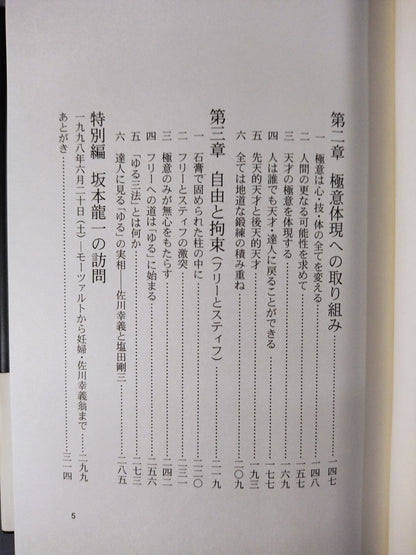 第二章 極意体現への取り組み……一四七
一 極意は心・技・体の全てを変える……一四八
二 人間の更なる可能性を求めて……一五七
三 天才の極意を体現する……一六九
四 人は誰でも天才・達人に戻ることができる……一七七
五 先天的天才と後天的天才……一九三
六 全ては地道な鍛練の積み重ね……二〇九
第三章 自由と拘束（フリーとスティフ）……二一九
一 石膏で固められた柱の中に……二二〇
二 フリーとスティフの激突……二三一
三 極意のみが無心をもたらす……二四二
四 フリーへの道は「ゆる」に始まる……二五六
五 「ゆる三法」とは何か……二七三
六 達人に見る「ゆる」の実相――佐川幸義と塩田剛三……二八五
特別編 坂本龍一の訪問
一九九八年六月二十日（土）――モーツァルトから妊婦・佐川幸義翁まで……二九九
あとがき……三一四
5